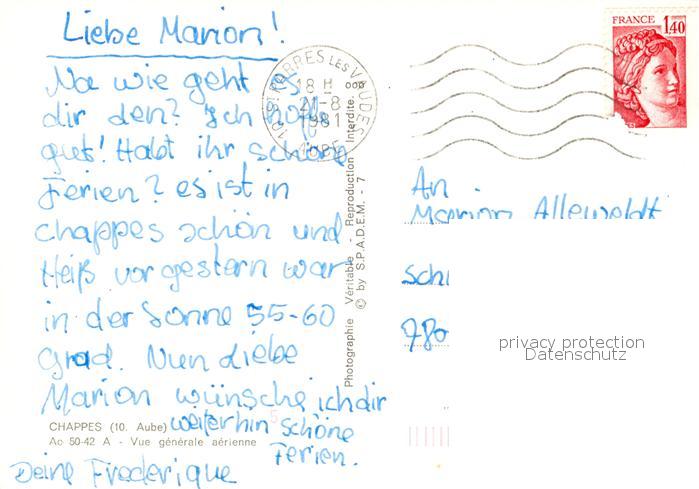 Liebe Marion!
Na wie geht es
dir den? Ich hoffe
gut! Habt ihr schöne
Ferien? es ist in
chappes schön und
Heiß vorgestern war
in der Sonne 55-60
Grad. Nun Liebe
Marion wünsche ich dir
weiterhin schöne
Ferien.
Deine Frederique
CHAPPES (10. Aube)
Ac 50-42 A - Vue générale aérienne
5
Photographie Véritable - Reproduction Interdite.
© by S.P.A.D.E.M. - 7
BARRES LES VAUDES
18 H
21-8
1981
AUBE
FRANCE 1,40
An
Marion Alleweldt
Schi
780
privacy protection
Datenschutz